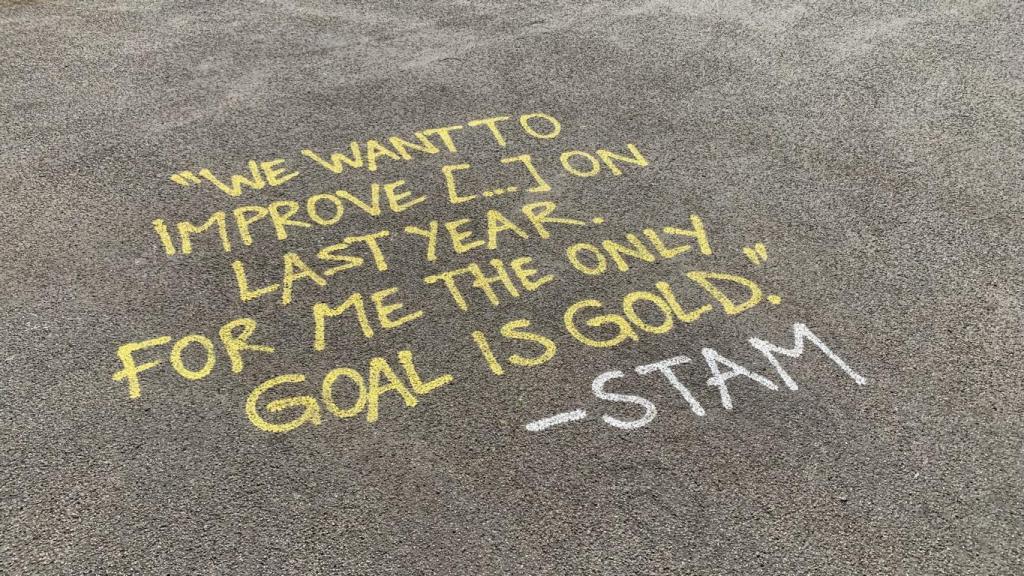 "WE WANT TO
IMPROVE [...] ON
LAST YEAR.
FOR ME THE ONLY
GOAL IS GOLD."
-STAM